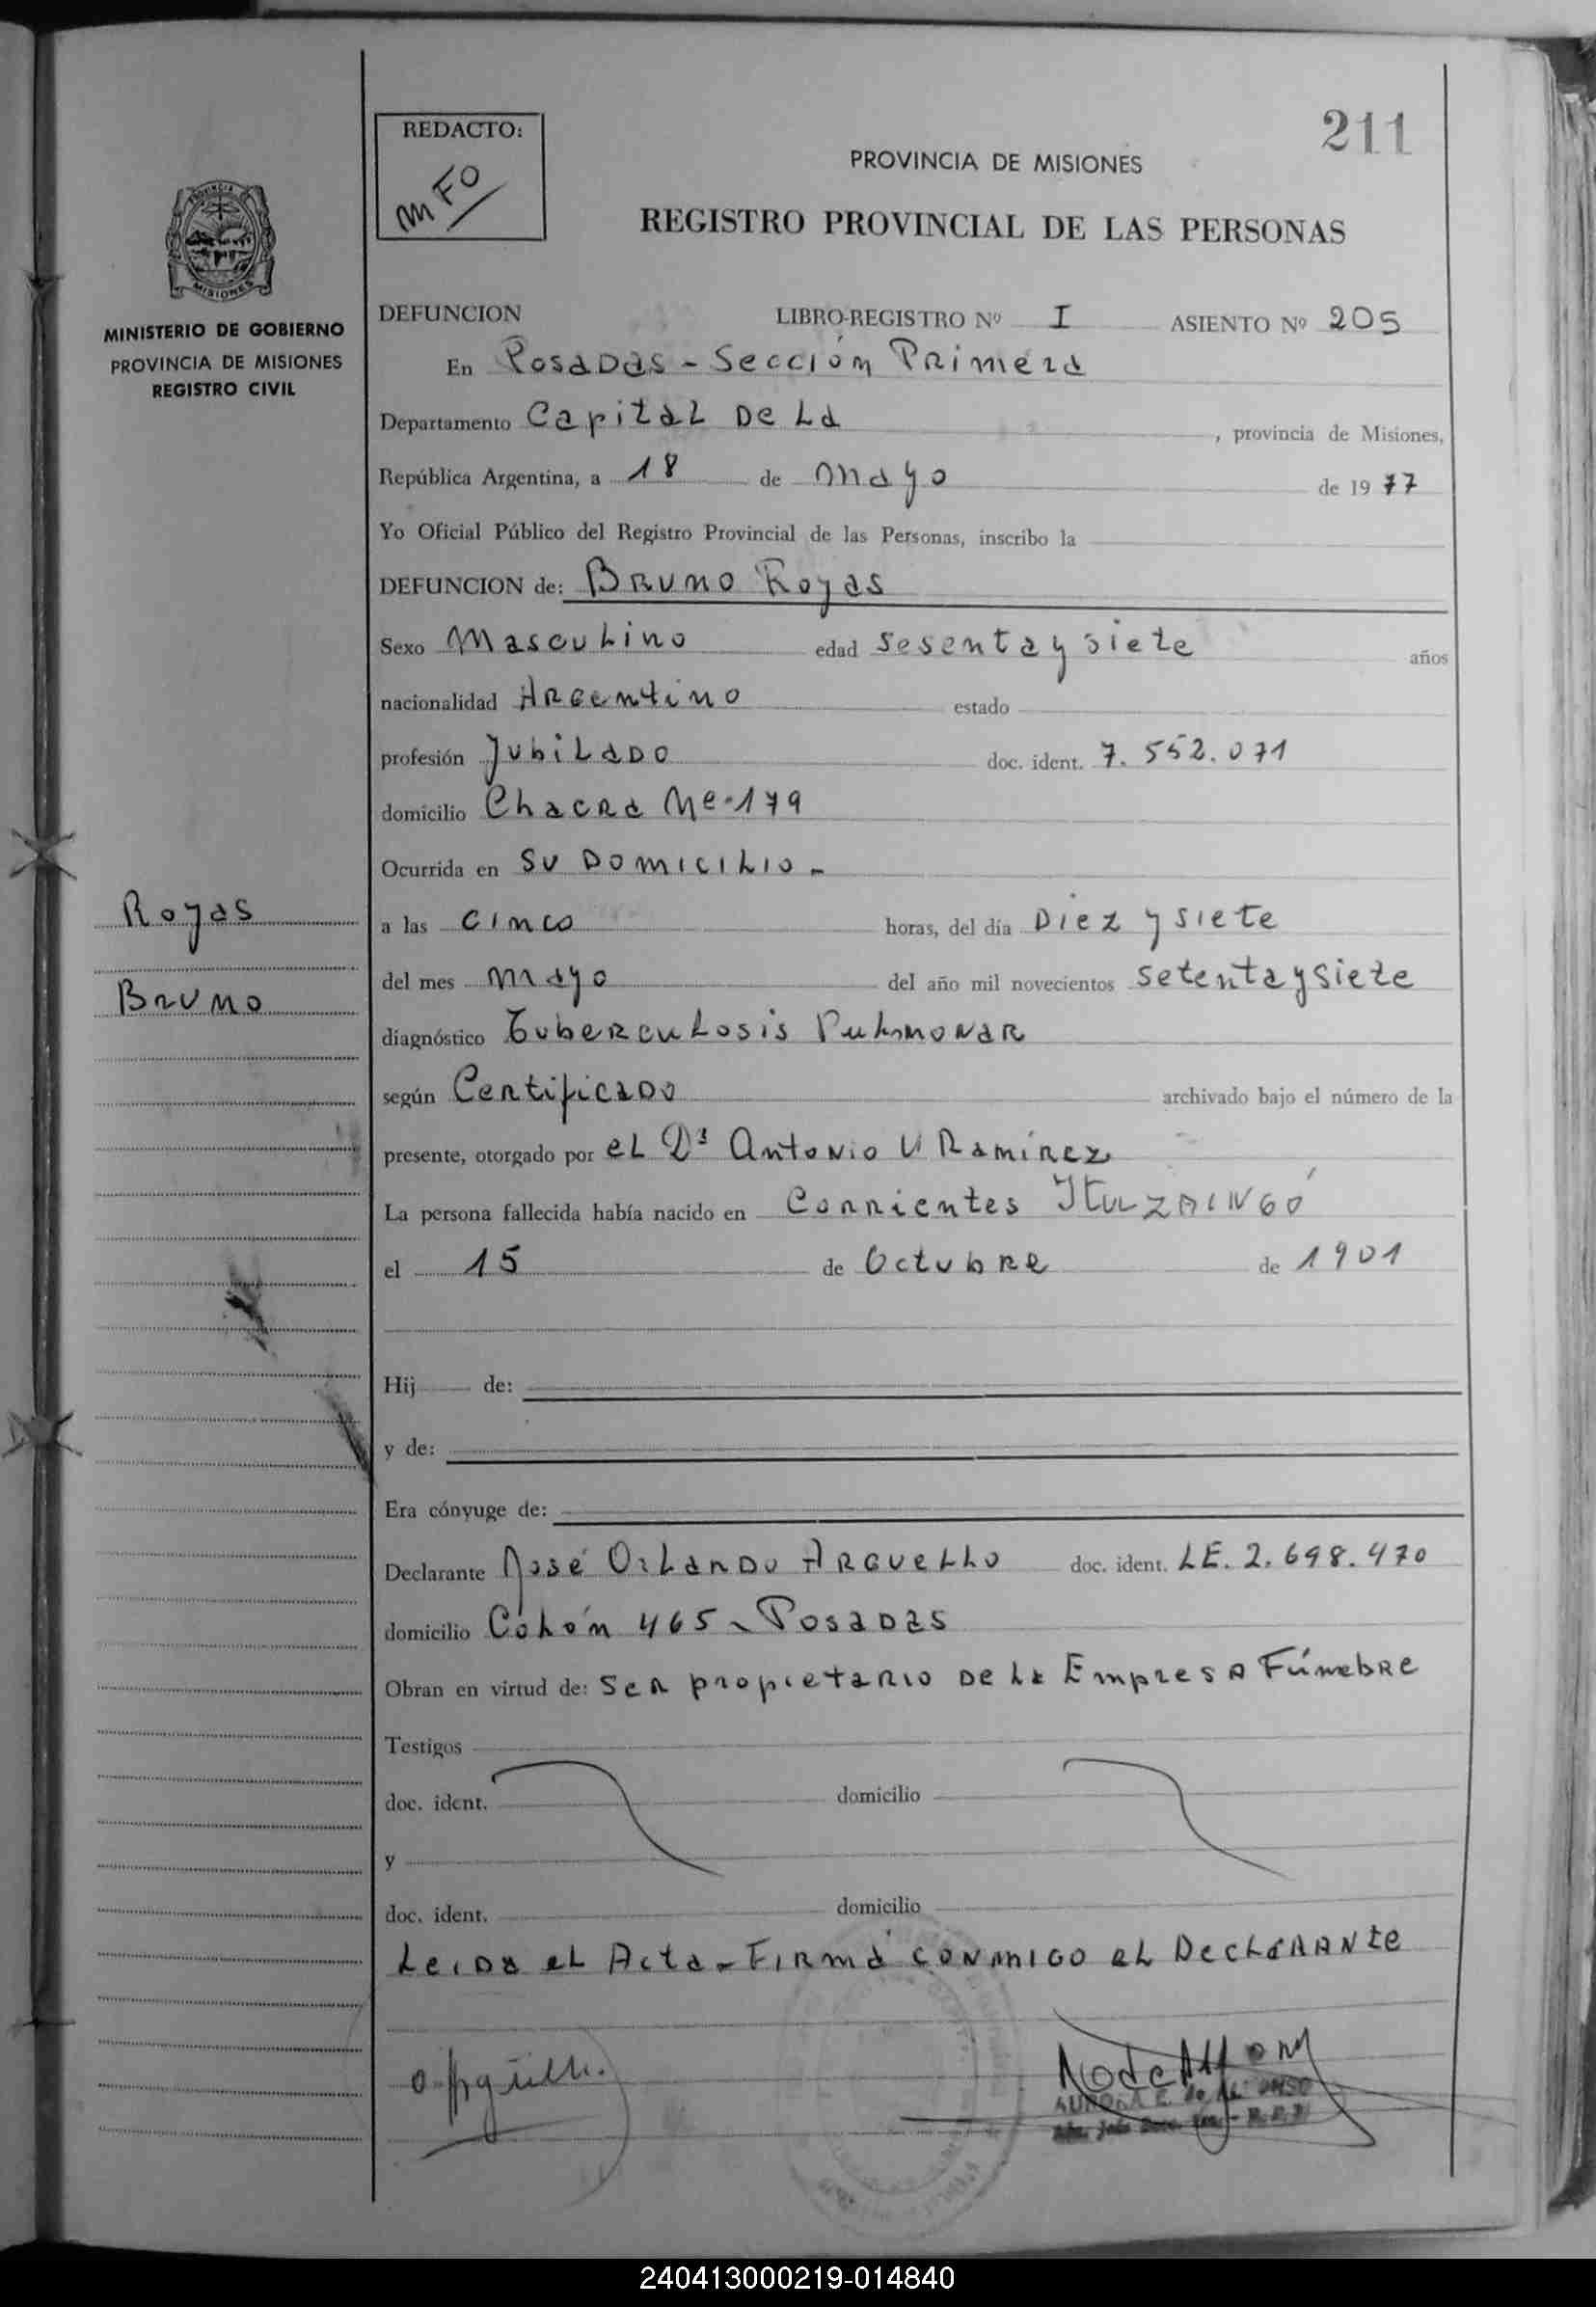 211
REDACTO:
MFO
PROVINCIA DE MISIONES
REGISTRO PROVINCIAL DE LAS PERSONAS
PROVINCIA DE
MISIONES
MINISTERIO DE GOBIERNO
PROVINCIA DE MISIONES
REGISTRO CIVIL
DEFUNCION LIBRO-REGISTRO Nº I ASIENTO Nº 205
En Posadas - Sección Primera
Departamento Capital De La , provincia de Misiones,
República Argentina, a 18 de mayo de 1977
Yo Oficial Público del Registro Provincial de las Personas, inscribo la
DEFUNCION de: Bruno Royas
Sexo Masculino edad Sesenta y siete años
nacionalidad Argentino estado
profesión Jubilado doc. ident. 7.552.071
domicilio Chacra Nº 179
Ocurrida en su Domicilio -
Royas
a las cinco horas, del día Diez y siete
del mes mayo del año mil novecientos setenta y siete
Bruno
diagnóstico Tuberculosis Pulmonar
según Certificado archivado bajo el número de la
presente, otorgado por el Dr Antonio V Ramírez
La persona fallecida había nacido en Corrientes Ituzaingó
el 15 de Octubre de 1901
Hij de:
y de:
Era cónyuge de:
Declarante José Orlando Arguello doc. ident. LE. 2.698.470
domicilio Colón 465 - Posadas
Obran en virtud de: Ser propietario de la Empresa Fúnebre
Testigos
doc. ident. domicilio
y
doc. ident. domicilio
Leida el Acta - Firma conmigo el Declarante
240413000219-014840